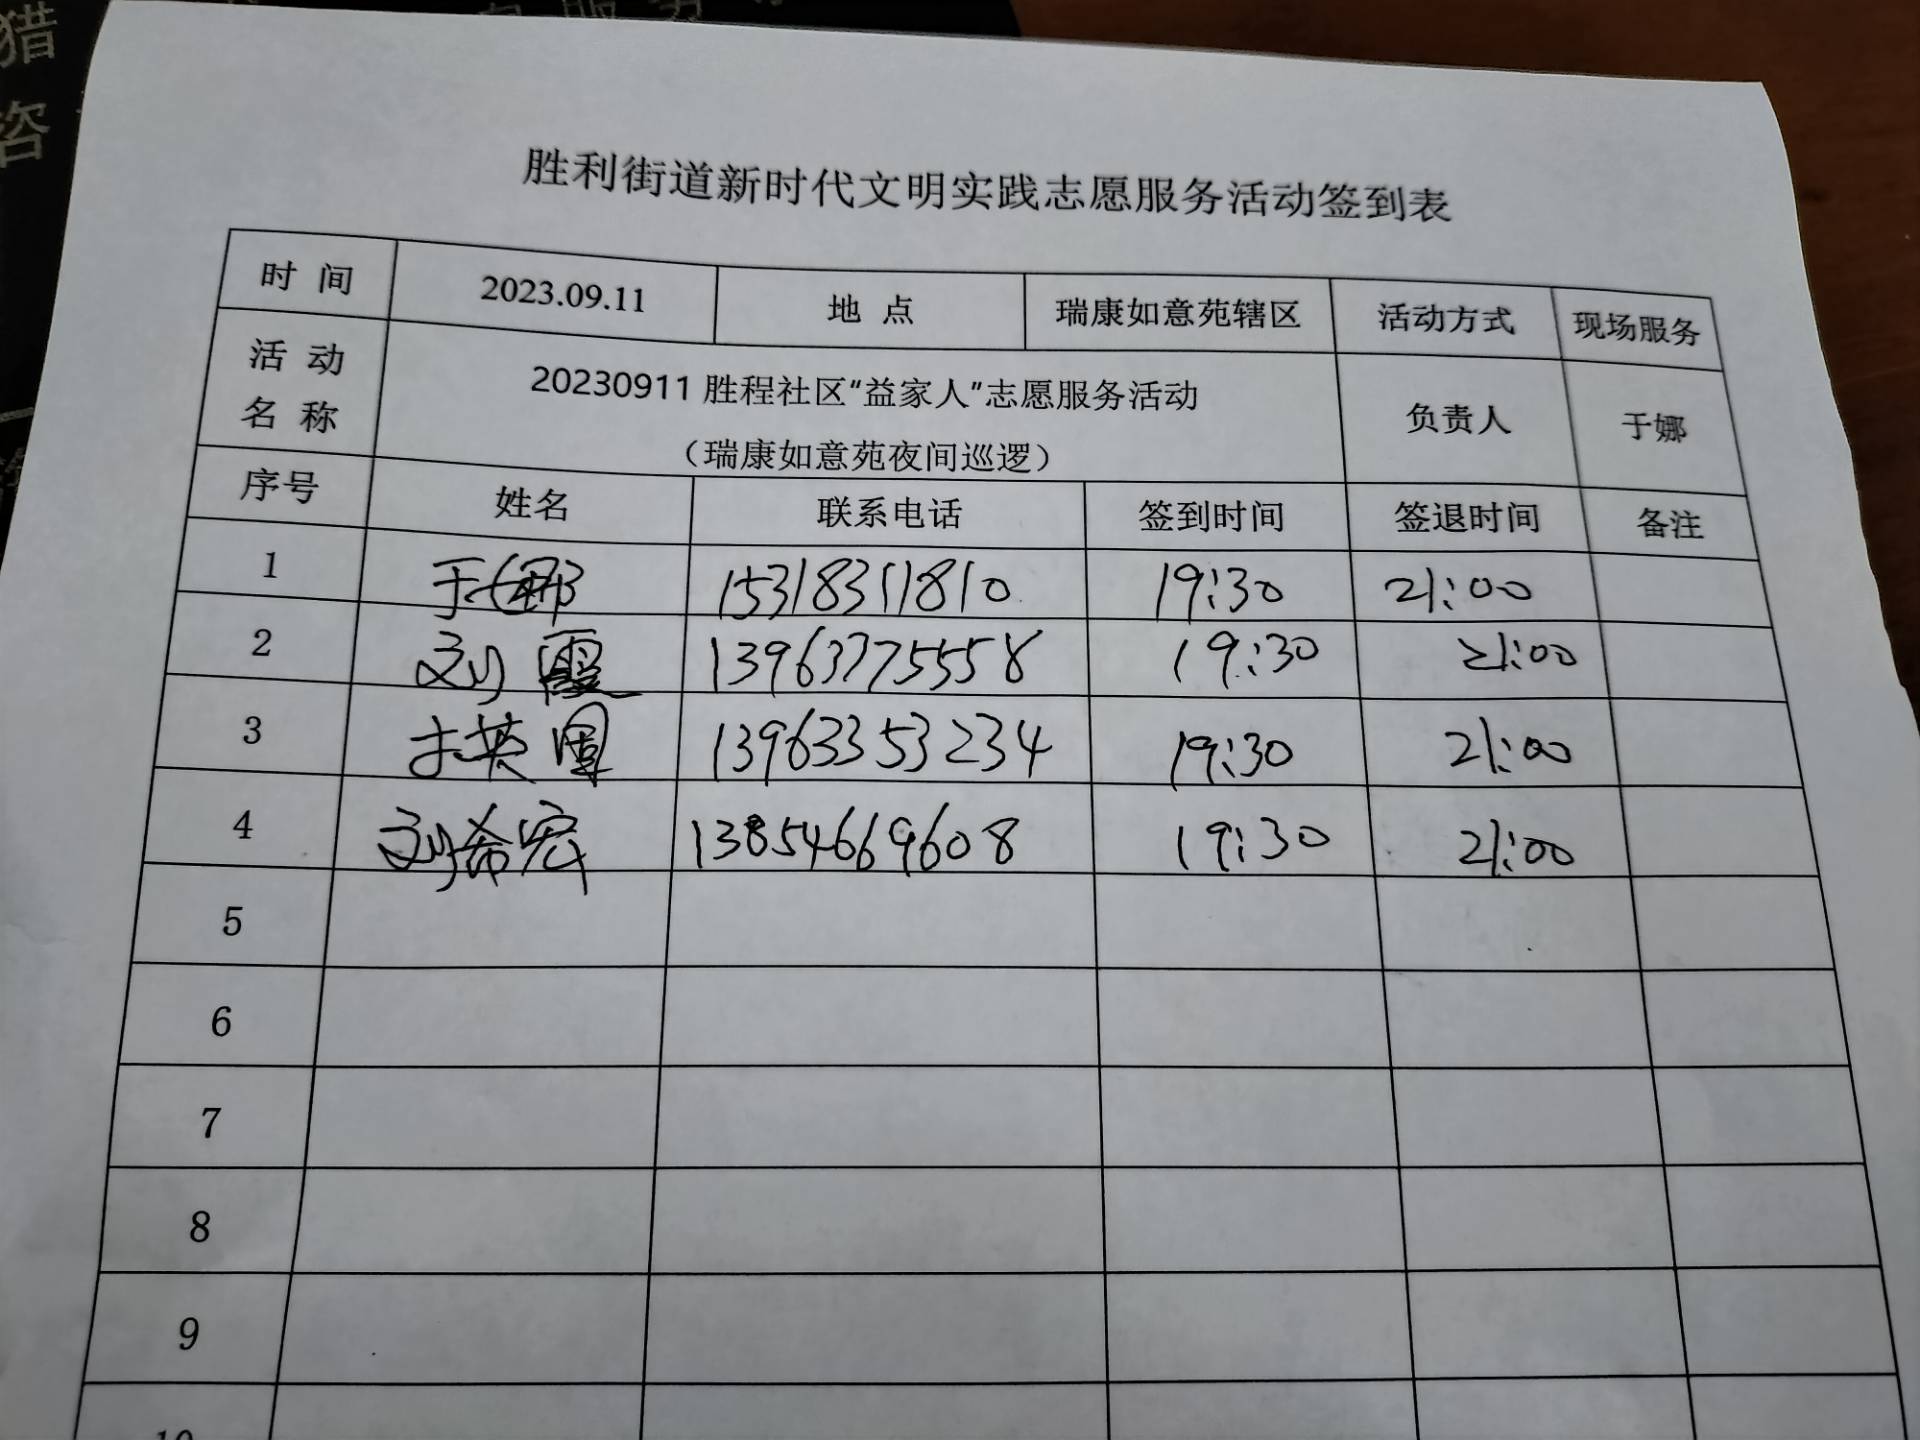 猎
咨
胜利街道新时代文明实践志愿服务活动签到表
时 间 2023.09.11 地 点 瑞康如意苑辖区 活动方式 现场服务
活 动
名 称
20230911 胜程社区“益家人”志愿服务活动
（瑞康如意苑夜间巡逻）
负责人 于娜
序号 姓名 联系电话 签到时间 签退时间 备注
1 于娜 15318311810 19:30 21:00
2 刘霞 13963775558 19:30 21:00
3 英 13963353234 19:30 21:00
4 刘希宏 13854669608 19:30 21:00
5
6
7
8
9
10